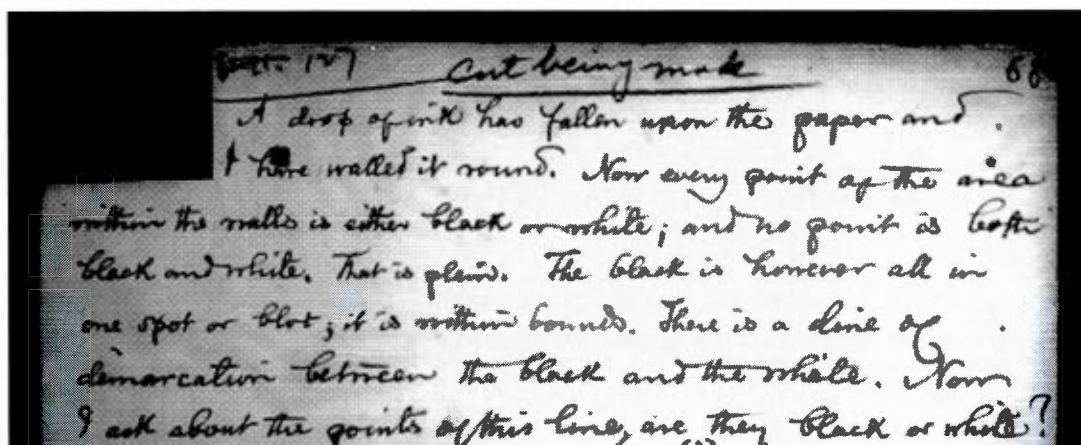 127 cut being made 68
A drop of ink has fallen upon the paper and
I have walled it round. Now every point of the area
within the walls is either black or white; and no point is both
black and white. That is plain. The black is however all in
one spot or blot; it is within bounds. There is a line of
demarcation between the black and the white. Now
I ask about the points of this line, are they black or white?